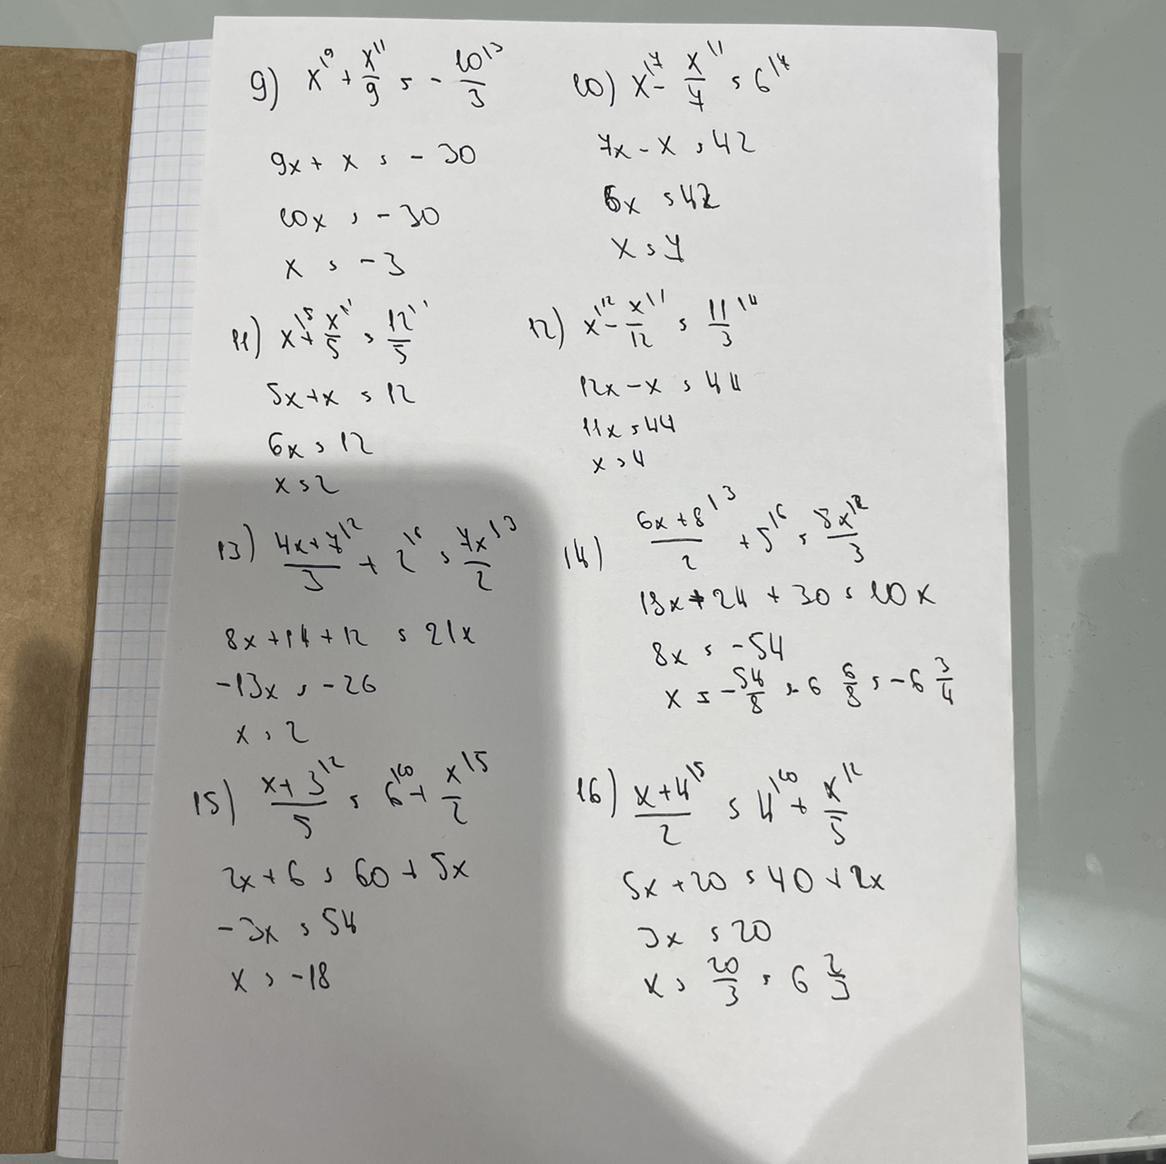 9) x^{|9} + \frac{x^{|1}}{9} = -\frac{10^{|3}}{3}
9x + x = -30
10x = -30
x = -3
10) x^{|7} - \frac{x^{|1}}{7} = 6^{|7}
7x - x = 42
6x = 42
x = 7
11) x^{|5} + \frac{x^{|1}}{5} = \frac{12^{|1}}{5}
5x + x = 12
6x = 12
x = 2
12) x^{|12} - \frac{x^{|1}}{12} = \frac{11}{3}^{|4}
12x - x = 44
11x = 44
x = 4
13) \frac{4x+7^{|2}}{3} + 2^{|6} = \frac{7x^{|3}}{2}
8x + 14 + 12 = 21x
-13x = -26
x = 2
14) \frac{6x+8^{|3}}{2} + 5^{|6} = \frac{5x^{|2}}{3}
18x + 24 + 30 = 10x
8x = -54
x = -\frac{54}{8} = -6\frac{6}{8} = -6\frac{3}{4}
15) \frac{x+3^{|2}}{5} = 6^{|10} + \frac{x^{|5}}{2}
2x + 6 = 60 + 5x
-3x = 54
x = -18
16) \frac{x+4^{|5}}{2} = 4^{|10} + \frac{x^{|2}}{5}
5x + 20 = 40 + 2x
3x = 20
x = \frac{20}{3} = 6\frac{2}{3}